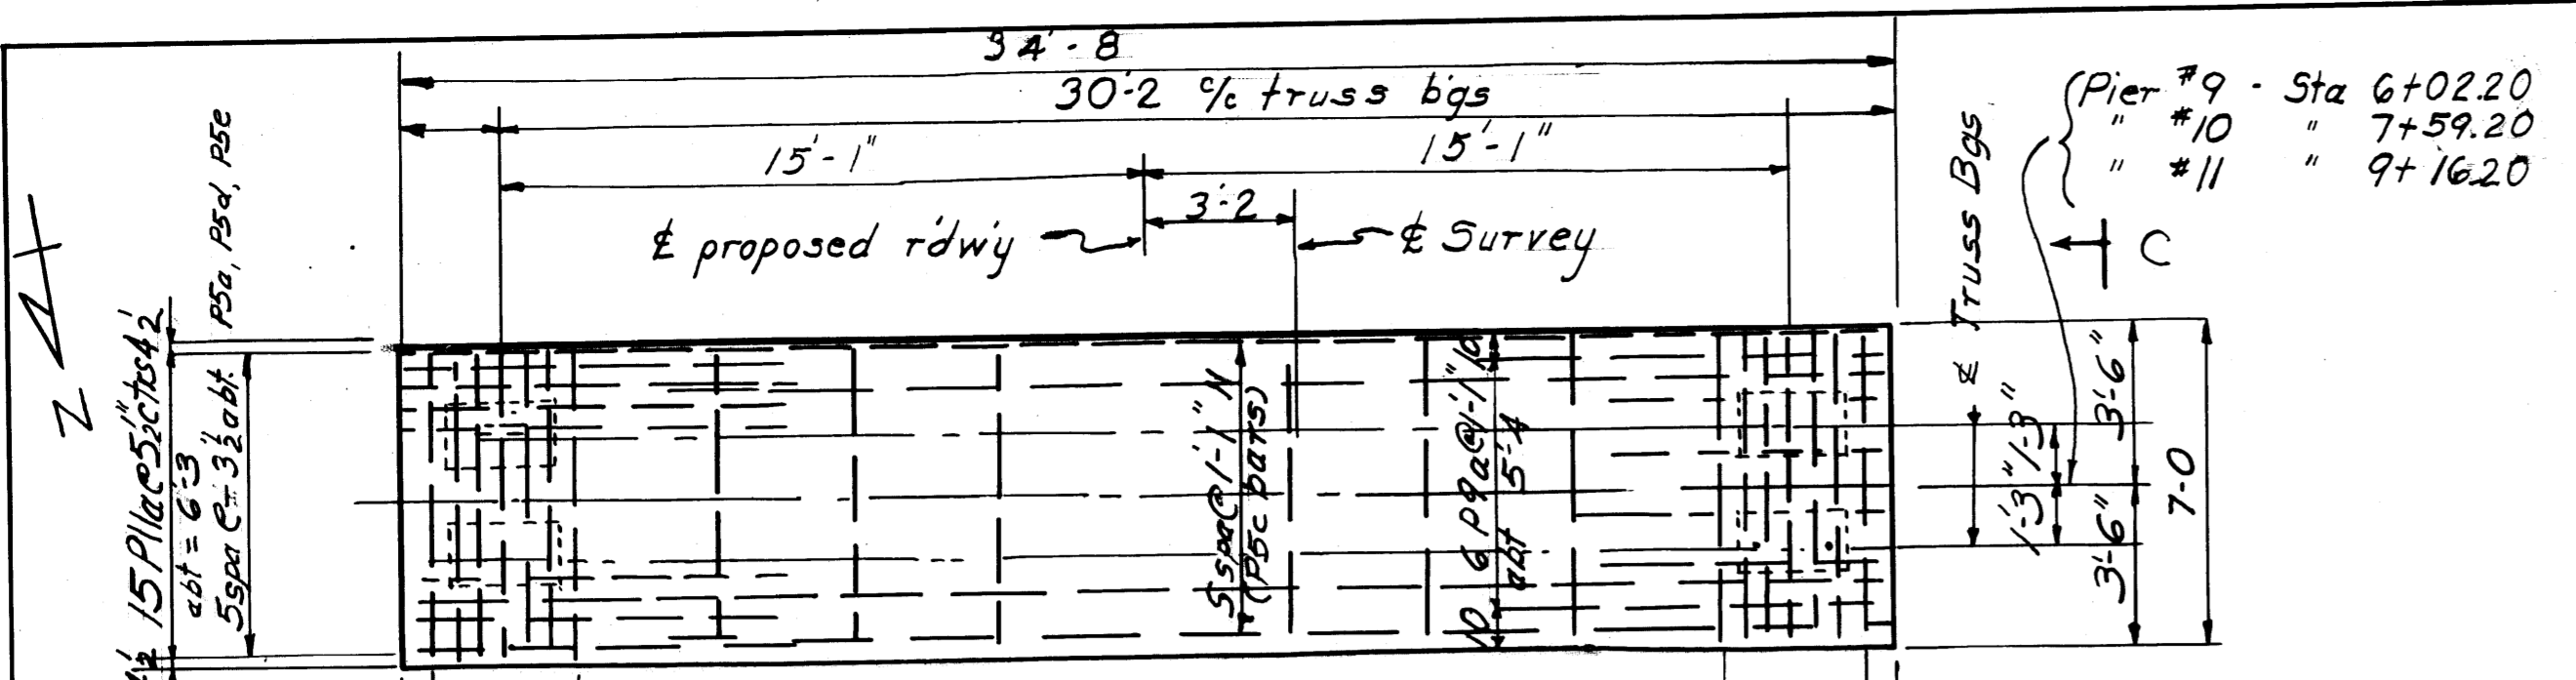 34'-8
30'-2 c/c truss bgs
15'-1" 15'-1"
3'-2
℄ proposed r'dw'y
℄ Survey
Pier #9 - Sta 6+02.20
" #10 " 7+59.20
" #11 " 9+16.20
C
℄ Truss Bgs
N
4½
15 P11a @ 5½" ctrs
abt = 6'-3
5 spa @ 3½ abt P5a, P5d, P5e
4½
5 spa @ 1'-1"
(P5c bars)
10
6 P9a @ 1'-1"
abt 5'-4
10
1'-3"
1'-3"
3'-6"
3'-6"
7'-0